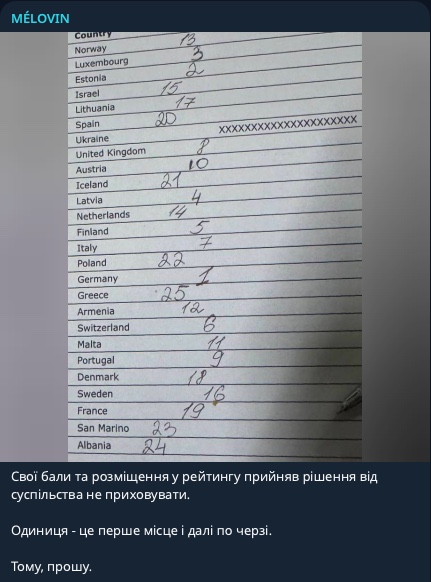 MÉLOVIN
Country
Norway 13
Luxembourg 3
Estonia 2
Israel 15
Lithuania 17
Spain 20
Ukraine XXXXXXXXXXXXXXXXXXXXX
United Kingdom 8
Austria 10
Iceland 21
Latvia 4
Netherlands 14
Finland 5
Italy 7
Poland 22
Germany 1
Greece 25
Armenia 12
Switzerland 6
Malta 11
Portugal 9
Denmark 18
Sweden 16
France 19
San Marino 23
Albania 24
Свої бали та розміщення у рейтингу прийняв рішення від
суспільства не приховувати.
Одиниця - це перше місце і далі по черзі.
Тому, прошу.